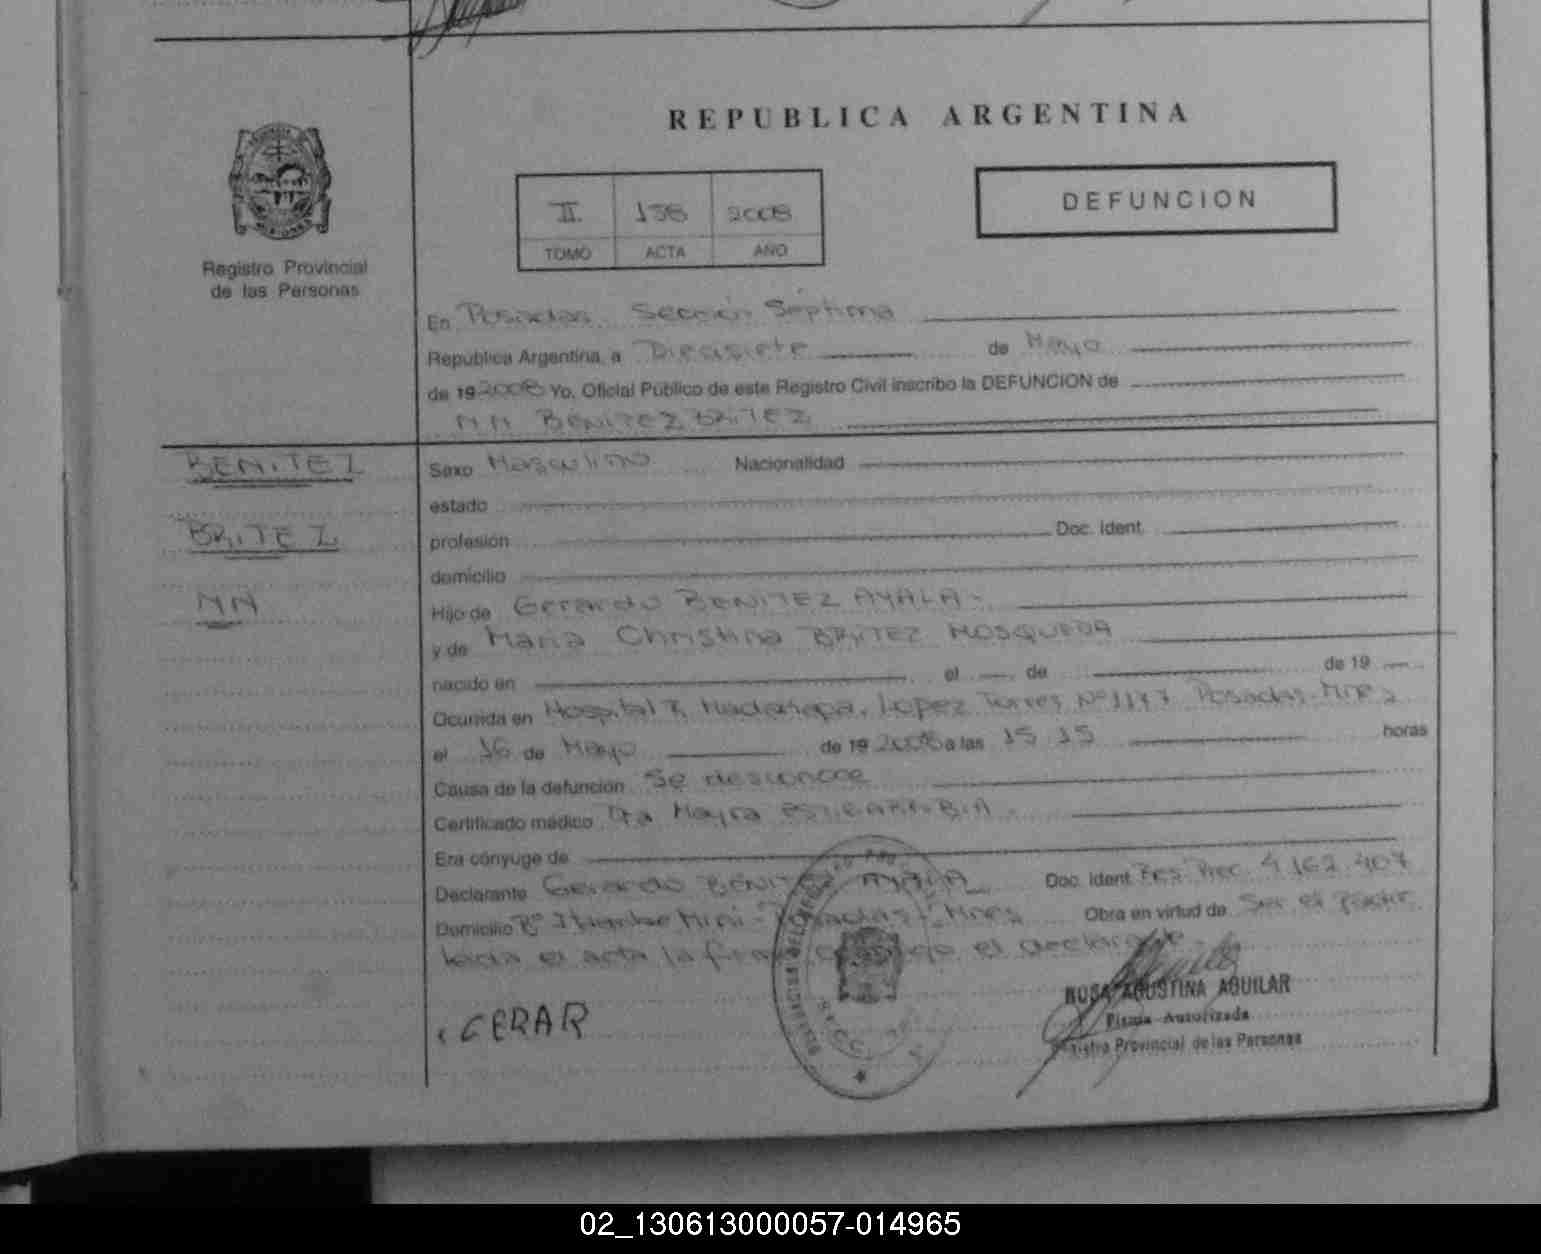 REPUBLICA ARGENTINA
DEFUNCION
II 2008
TOMO ACTA AÑO
Registro Provincial
de las Personas
En Posadas Sección Séptima
República Argentina, a Diecisiete de Mayo
de 19 2008 Yo, Oficial Público de este Registro Civil inscribo la DEFUNCION de
NN BENITEZ BRITEZ
BENITEZ
BRITEZ
NN
Sexo Masculino Nacionalidad
estado
profesión Doc. Ident.
domicilio
Hijo de Gerardo BENITEZ AYALA -
y de Maria Christina BRITEZ MOSQUEDA
nacido en el de de 19
Ocurrida en Hospital R. Madariaga, Lopez Torres Nº 1177 Posadas - Mnes
el 16 de Mayo de 19 2008 a las 15 15 horas
Causa de la defunción Se desconoce
Certificado médico Dra Mayra
Era cónyuge de
Declarante Gerardo BENITEZ AYALA Doc. Ident. 4.162.407
Domicilio Bº Mini - Posadas - Mnes Obra en virtud de Ser el padre
leida el acta la firma el declarante -
GERAR
ROSA AGUSTINA AGUILAR
Firma Autorizada
Registro Provincial de las Personas
02_130613000057-014965